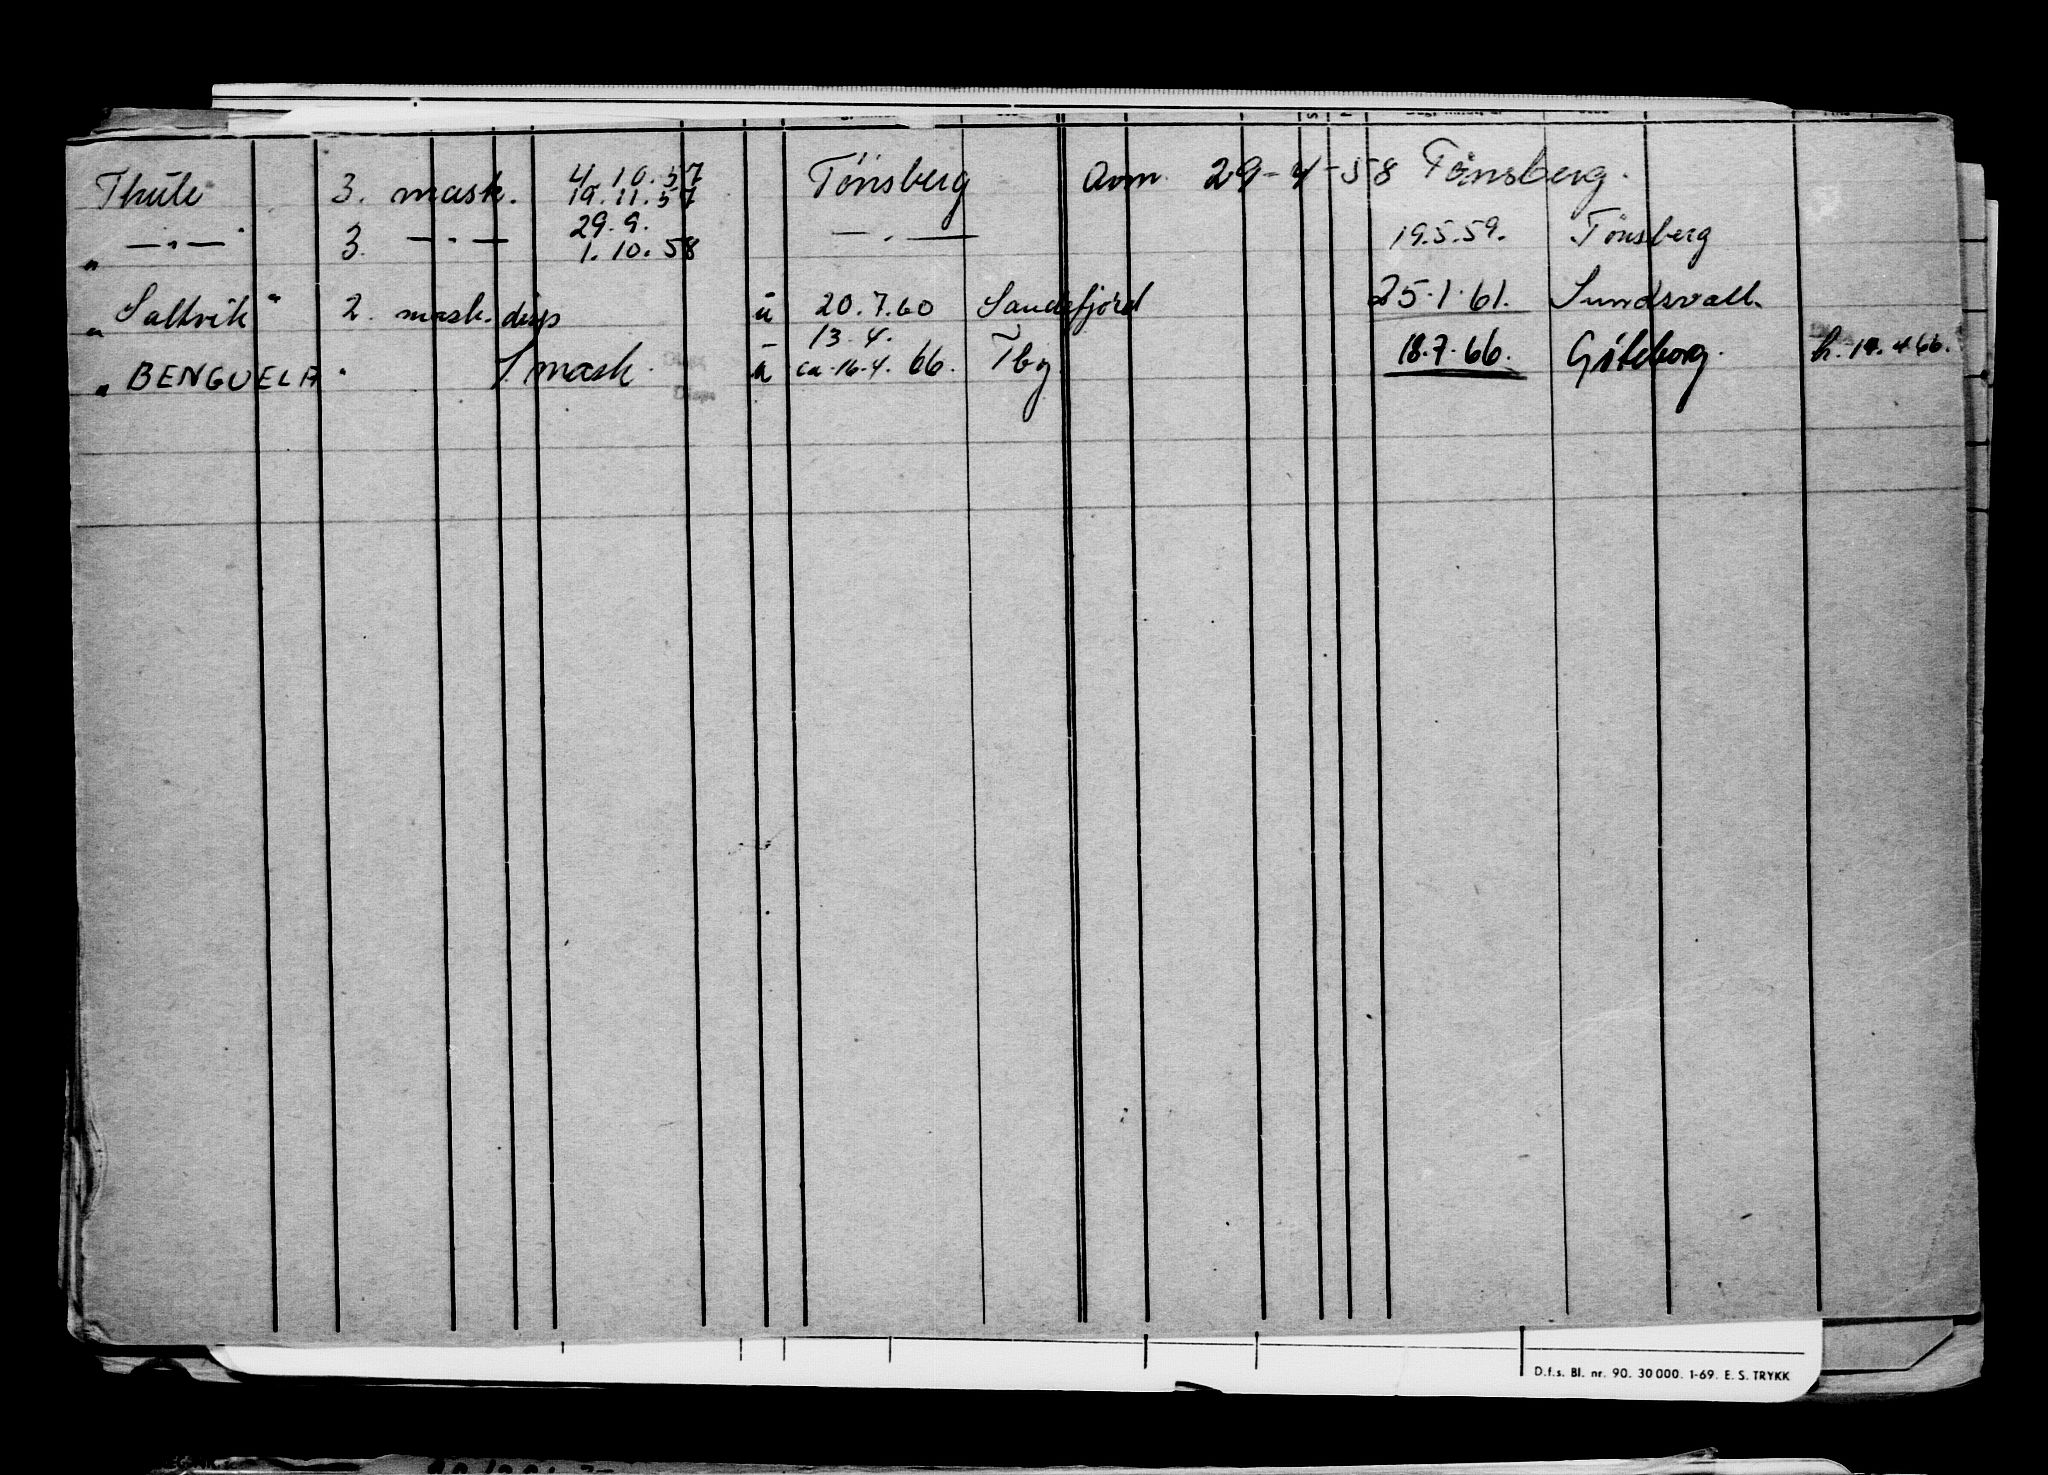 Thule 3. mask. 4.10.57 19.11.57 Tönsberg avm 29-4-58 Tönsberg.
—"— 3. —"— 29.9. 1.10.58 —"— 19.5.59. Tönsberg
"Saltvik" 2. mask. disp ü 20.7.60 Sandefjord 25.1.61. Sundsvall.
"BENGUELA" 1. mask. ü 13.4. ca. 16.4. 66. Tbg 18.7.66. Göteborg. h. 14.4.66.
Disps
D.f.s. Bl. nr. 90. 30 000. 1-69. E. S. TRYKK